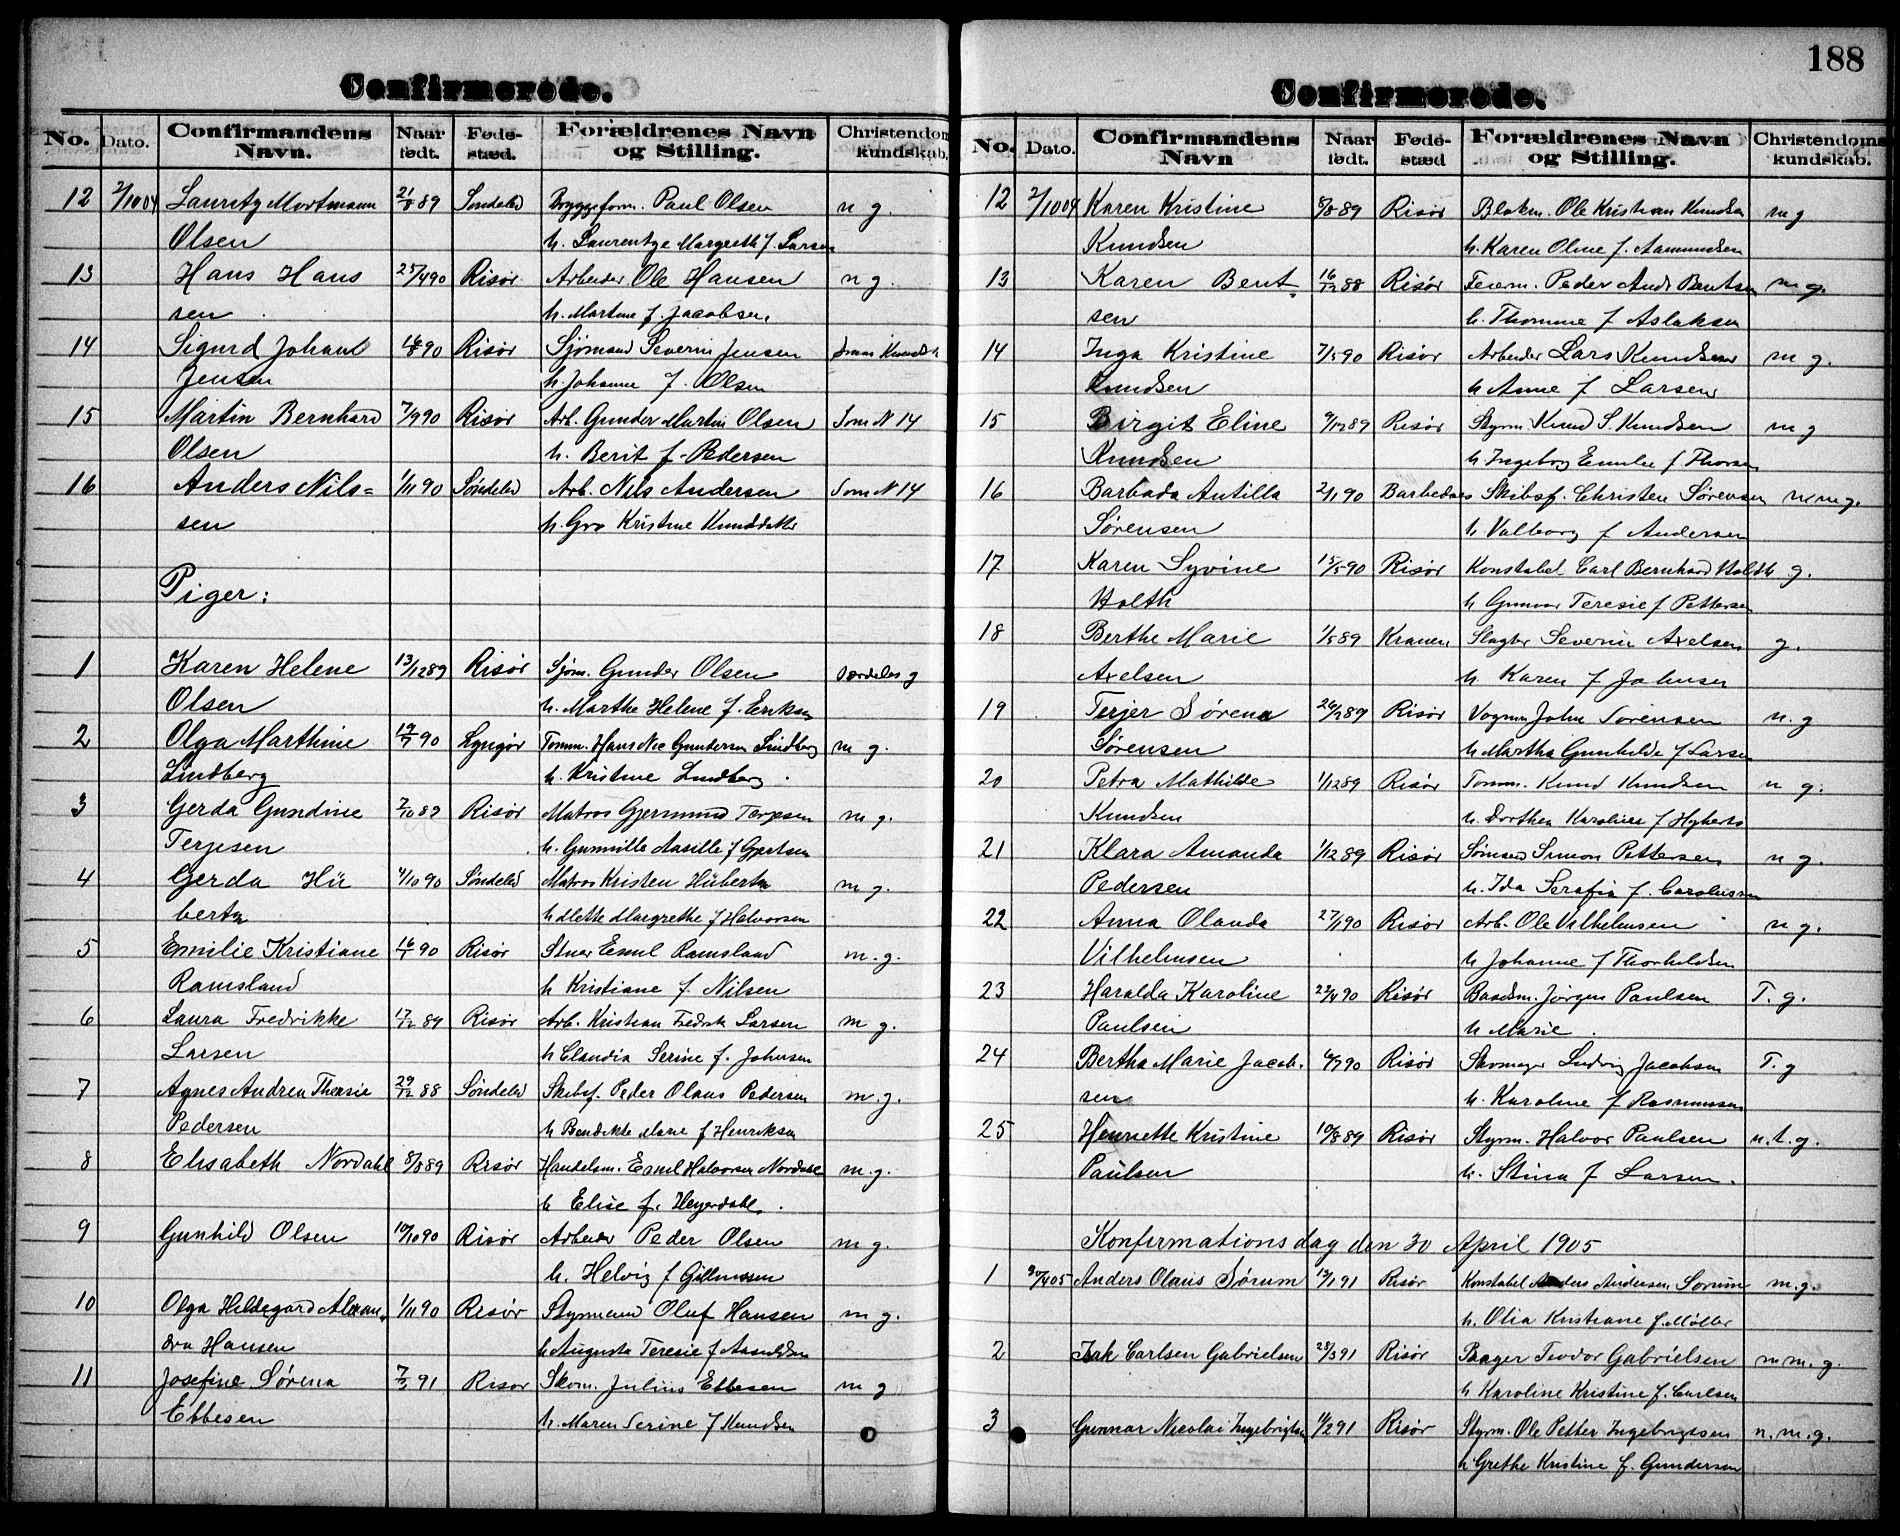 Confirmerede.
No. Dato. Confirmandens Navn. Naar født. Føde-stæd. Forældrenes Navn og Stilling. Christendoms kundskab.
12 2/10 04 Lauritz Mortmann 21/8 89 Søndeled Bryggeform. Paul Olsen n g.
Olsen h. Laurentze Margreth f. Larsen
13 Hans Hans 25/4 90 Risør Arbeider Ole Hansen n g.
sen h. Martine f. Jacobsen
14 Sigurd Johan 16/8 90 Risør Sjømand Severin Jensen
Jensen h. Johanne f. Olsen
15 Martin Bernhard 7/9 90 Risør Arb. Gunder Martin Olsen Som N 14
Olsen h. Berit f. Pedersen
16 Anders Nils= 1/11 90 Søndeled Arb. Nils Andersen Som N 14
sen h. Gro Kristine Knudsdatter
Piger:
1 Karen Helene 13/12 89 Risør Sjøm. Gunder Olsen særdeles g
Olsen h. Marthe Helene f. Eriksen
2 Olga Marthine 19/7 90 Lyngør Tømm. Hans Nic Gundersen Lindberg m g.
Lindberg h. Kristine Lindberg.
3 Gerda Gundine 7/10 89 Risør Matros Gjermund Terjesen m g.
Terjesen h. Gunnille Aasille f Gjertsen
4 Gerda Hü 4/10 90 Søndeled Matros Kristen Hübertz m g.
bertz h Mette Margrethe f Halvorsen
5 Emilie Kristiane 16/1 90 Risør Stuer Emil Ramsland m. g.
Ramsland h Kristiane f. Nilsen
6 Laura Fredrikke 17/12 89 Risør Arb. Kristian Fredrik Larsen m g.
Larsen h Claudia Serine f. Johnsen
7 Agnes Andrea Theresie 29/12 88 Søndeled Skibsf. Peder Olaus Pedersen m. g.
Pedersen h Bendikte Marie f Henriksen
8 Elisabeth Nordahl 8/8 89 Risør Handelsm. Emil Halvorsen Nordahl m. g.
h Elise f. Heyerdahl.
9 Gunhild Olsen 10/10 90 Risør Arbeider Peder Olsen m g.
h. Helvig f Gillmssen
10 Olga Hildegard Alexan= 1/11 90 Risør Styrmand Oluf Hansen m g.
dra Hansen h Augusta Teresie f
11 Josefine Sørena 7/3 91 Risør Skom. Julius Ebbesen m g
Ebbesen h. Maren Serine f Knudsen
188
Confirmerede.
No. Dato. Confirmandens Navn Naar født. Føde-stæd Forældrenes Navn og Stilling. Christendoms kundskab.
12 2/10 04 Karen Kristine 5/8 89 Risør Blokm. Ole Kristian Knudsen m g
Knudsen h. Karen Oline f. Aamundsen
13 Karen Bent= 16/12 88 Risør Peder Andr Bentsen m g.
sen h. Thomine f Aslaksen
14 Inga Kristine 7/5 90 Risør Arbeider Lars Knudsen m g.
Knudsen h Anne f Larsen
15 Birgit Eline 9/12 89 Risør Styrm. Knud S. Knudsen m g
Knudsen h Ingeborg Emilie f Thorsen
16 Barbada Antilla 2/1 90 Barbedoes Skibsf. Christen Sørensen n m g.
Sørensen h Valborg f Andersen
17 Karen Syvine 15/5 90 Risør Konstabel Carl Bernhard Holth g.
Holth h Gunvor Teresie f Pettersen
18 Berthe Marie 1/5 89 Kragerø Slagter Severin Axelsen g.
Axelsen h Karen f Johnsen
19 Terjer Sørena 26/12 89 Risør Vognm John Sørensen n. g
Sørensen h Martha Gunhilde f Larsen
20 Petra Mathilde 1/12 89 Risør Tømm. Knud Knudsen n g.
Knudsen h. Dorthea Karoline f
21 Klara Amanda 1/12 89 Risør Sømand Simon Pettersen n g.
Pedersen h. Ida Serafia f. Carolussen
22 Anna Olanda 27/1 90 Risør Arb. Ole Vilhelmsen n g.
Vilhelmsen h Johanne f Thorkildsen
23 Haralda Karoline 22/4 90 Risør Baadsm. Jørgen Paulsen T. g.
Paulsen h Marie.
24 Bertha Marie Jacob- 6/7 90 Risør Skomager Ludvig Jacobsen T. g
sen h. Karoline f Rasmussen
25 Henriette Kristine 10/8 89 Risør Styrm. Halvor Paulsen n. t. g.
Paulsen h. Stina f Larsen.
Konfirmations dag den 30 April 1905
1 30/4 05 Anders Olaus Sørum 13/1 91 Risør Konstabel Anders Andersen Sørum m. g.
h. Olia Kristiane f. Møller
2 Isak Carlsen Gabrielsen 28/3 91 Risør Bager Teodor Gabrielsen m m. g.
h Karoline Kristine f. Carlsen
3 Gunnar Nicolai Ingebrigtsen 11/2 91 Risør Styrm. Ole Petter Ingebrigtsen n. m. g.
h Grethe Kristine f. Gundersen